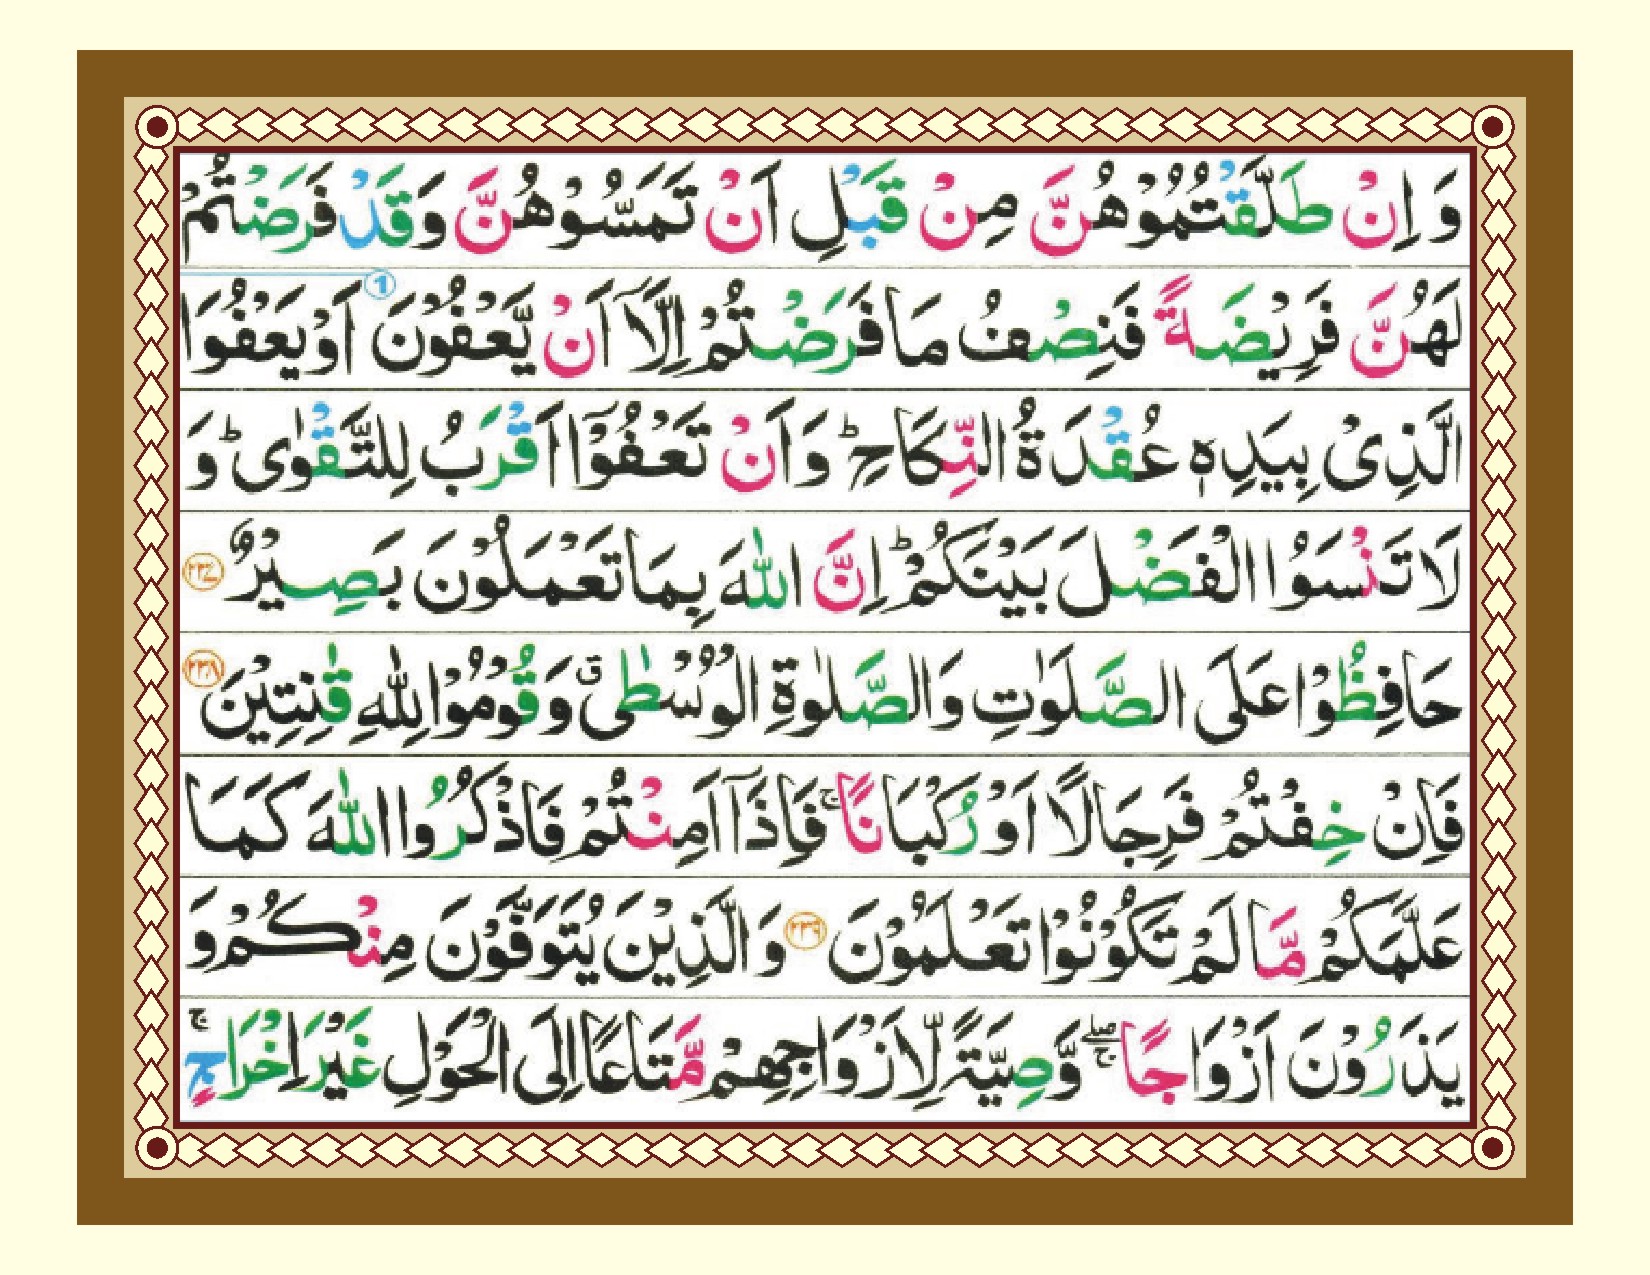 وَ اِنْ طَلَّقْتُمُوْهُنَّ مِنْ قَبْلِ اَنْ تَمَسُّوْهُنَّ وَقَدْ فَرَضْتُمْ
لَهُنَّ فَرِيْضَةً فَنِصْفُ مَا فَرَضْتُمْ اِلَّاۤ اَنْ يَّعْفُوْنَ اَوْ يَعْفُوَا ①
الَّذِىْ بِيَدِهٖ عُقْدَةُ النِّكَاحِ ؕ وَ اَنْ تَعْفُوْۤا اَقْرَبُ لِلتَّقْوٰى ؕ وَ
لَا تَنْسَوُا الْفَضْلَ بَيْنَكُمْ ؕ اِنَّ اللّٰهَ بِمَا تَعْمَلُوْنَ بَصِيْرٌ ﴿۲۳۷﴾
حَافِظُوْا عَلَى الصَّلَوٰتِ وَالصَّلٰوةِ الْوُسْطٰى ۗ وَ قُوْمُوْا لِلّٰهِ قٰنِتِيْنَ ﴿۲۳۸﴾
فَاِنْ خِفْتُمْ فَرِجَالًا اَوْ رُكْبَانًا ۚ فَاِذَاۤ اَمِنْتُمْ فَاذْكُرُوا اللّٰهَ كَمَا
عَلَّمَكُمْ مَّا لَمْ تَكُوْنُوْا تَعْلَمُوْنَ ﴿۲۳۹﴾ وَ الَّذِيْنَ يُتَوَفَّوْنَ مِنْكُمْ وَ
يَذَرُوْنَ اَزْوَاجًا ۖۚ وَّصِيَّةً لِّاَزْوَاجِهِمْ مَّتَاعًا اِلَى الْحَوْلِ غَيْرَ اِخْرَاجٍ ۚ